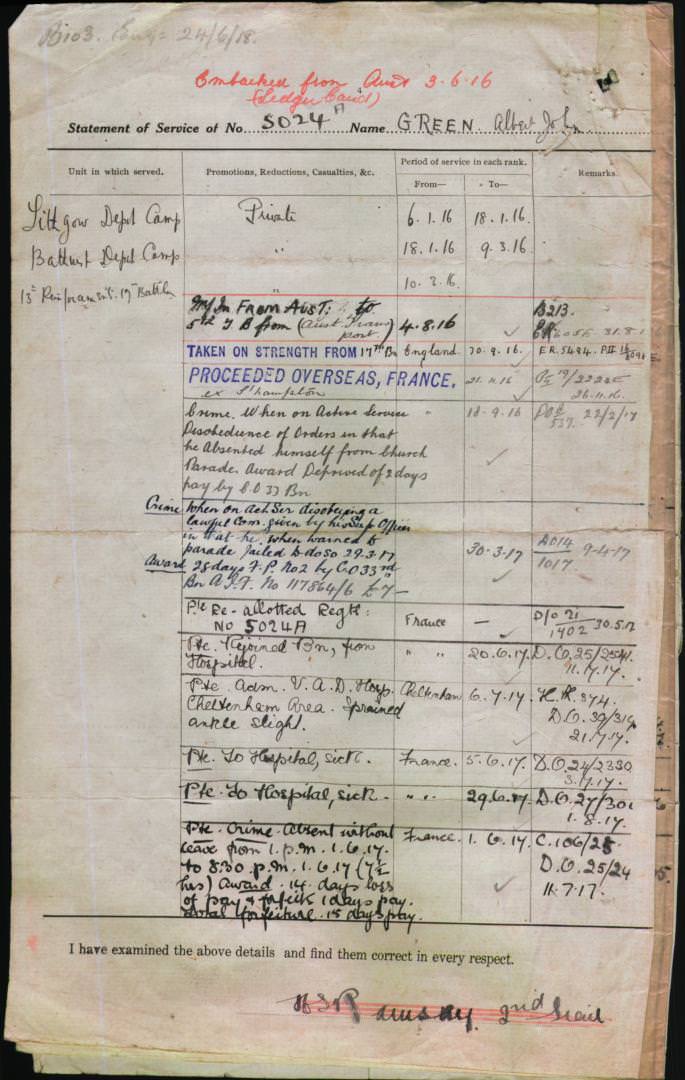 24/6/18.
Embarked from Aust 3.6.16
(Ledger Card)
Statement of Service of No. 5024 A Name GREEN Albert John
Unit in which served. Promotions, Reductions, Casualties, &c. Period of service in each rank. Remarks.
From— To—
Lithgow Depot Camp Private 6.1.16 18.1.16.
Bathurst Depot Camp " 18.1.16 9.3.16
13th Reinforcements. 17th Battln " 10.3.16.
M/In From AUST: to B213.
5th T B from (Aust Trans 4.8.16
port)
TAKEN ON STRENGTH FROM 17th Bn England. 30.9.16. E.R. 5484.
PROCEEDED OVERSEAS, FRANCE. 21.11.16
ex S'hampton 26.11.16.
Crime. When on Active Service " 18.9.16 22/2/17
Disobedience of Orders in that 537.
he Absented himself from Church
Parade. Award Deprived of 2 days
pay by C.O 33 Bn
Crime When on Act Ser disobeying a
lawful Com. given by his Sup Officer
in that he, when warned to
parade failed to do so 29.3.17 30.3.17 DO14 9.4.17
Award 28 days F.P. No 2 by C.O 33rd 1017.
Bn A.I.F. No 117864/6 £7—
Pte Re-allotted Regtl: France — D/O 21
No 5024A 1402 30.5.17
Pte. Rejoined Bn, from " " 20.6.17. D.O.25/2541.
Hospital. 11.7.17.
Pte Adm. V.A.D. Hosp. Cheltenham 6.7.17. H.R. 374.
Cheltenham Area. Sprained D.O. 39/319
ankle slight. 21.7.17.
Pte. To Hospital, sick. France. 5.6.17. D.O.24/2330
3.7.17.
Pte. To Hospital, sick. " " 29.6.17. D.O.27/301
1.8.17.
Pte. Crime. Absent without France. 1.6.17. C.106/25
leave from 1.p.m. 1.6.17. D.O.25/24
to 8.30 p.m. 1.6.17 (7½ 11.7.17.
hrs) Award. 14 days loss
of pay & forfeit 1 days pay.
Total forfeiture. 15 days pay.
I have examined the above details and find them correct in every respect.
Ramsay